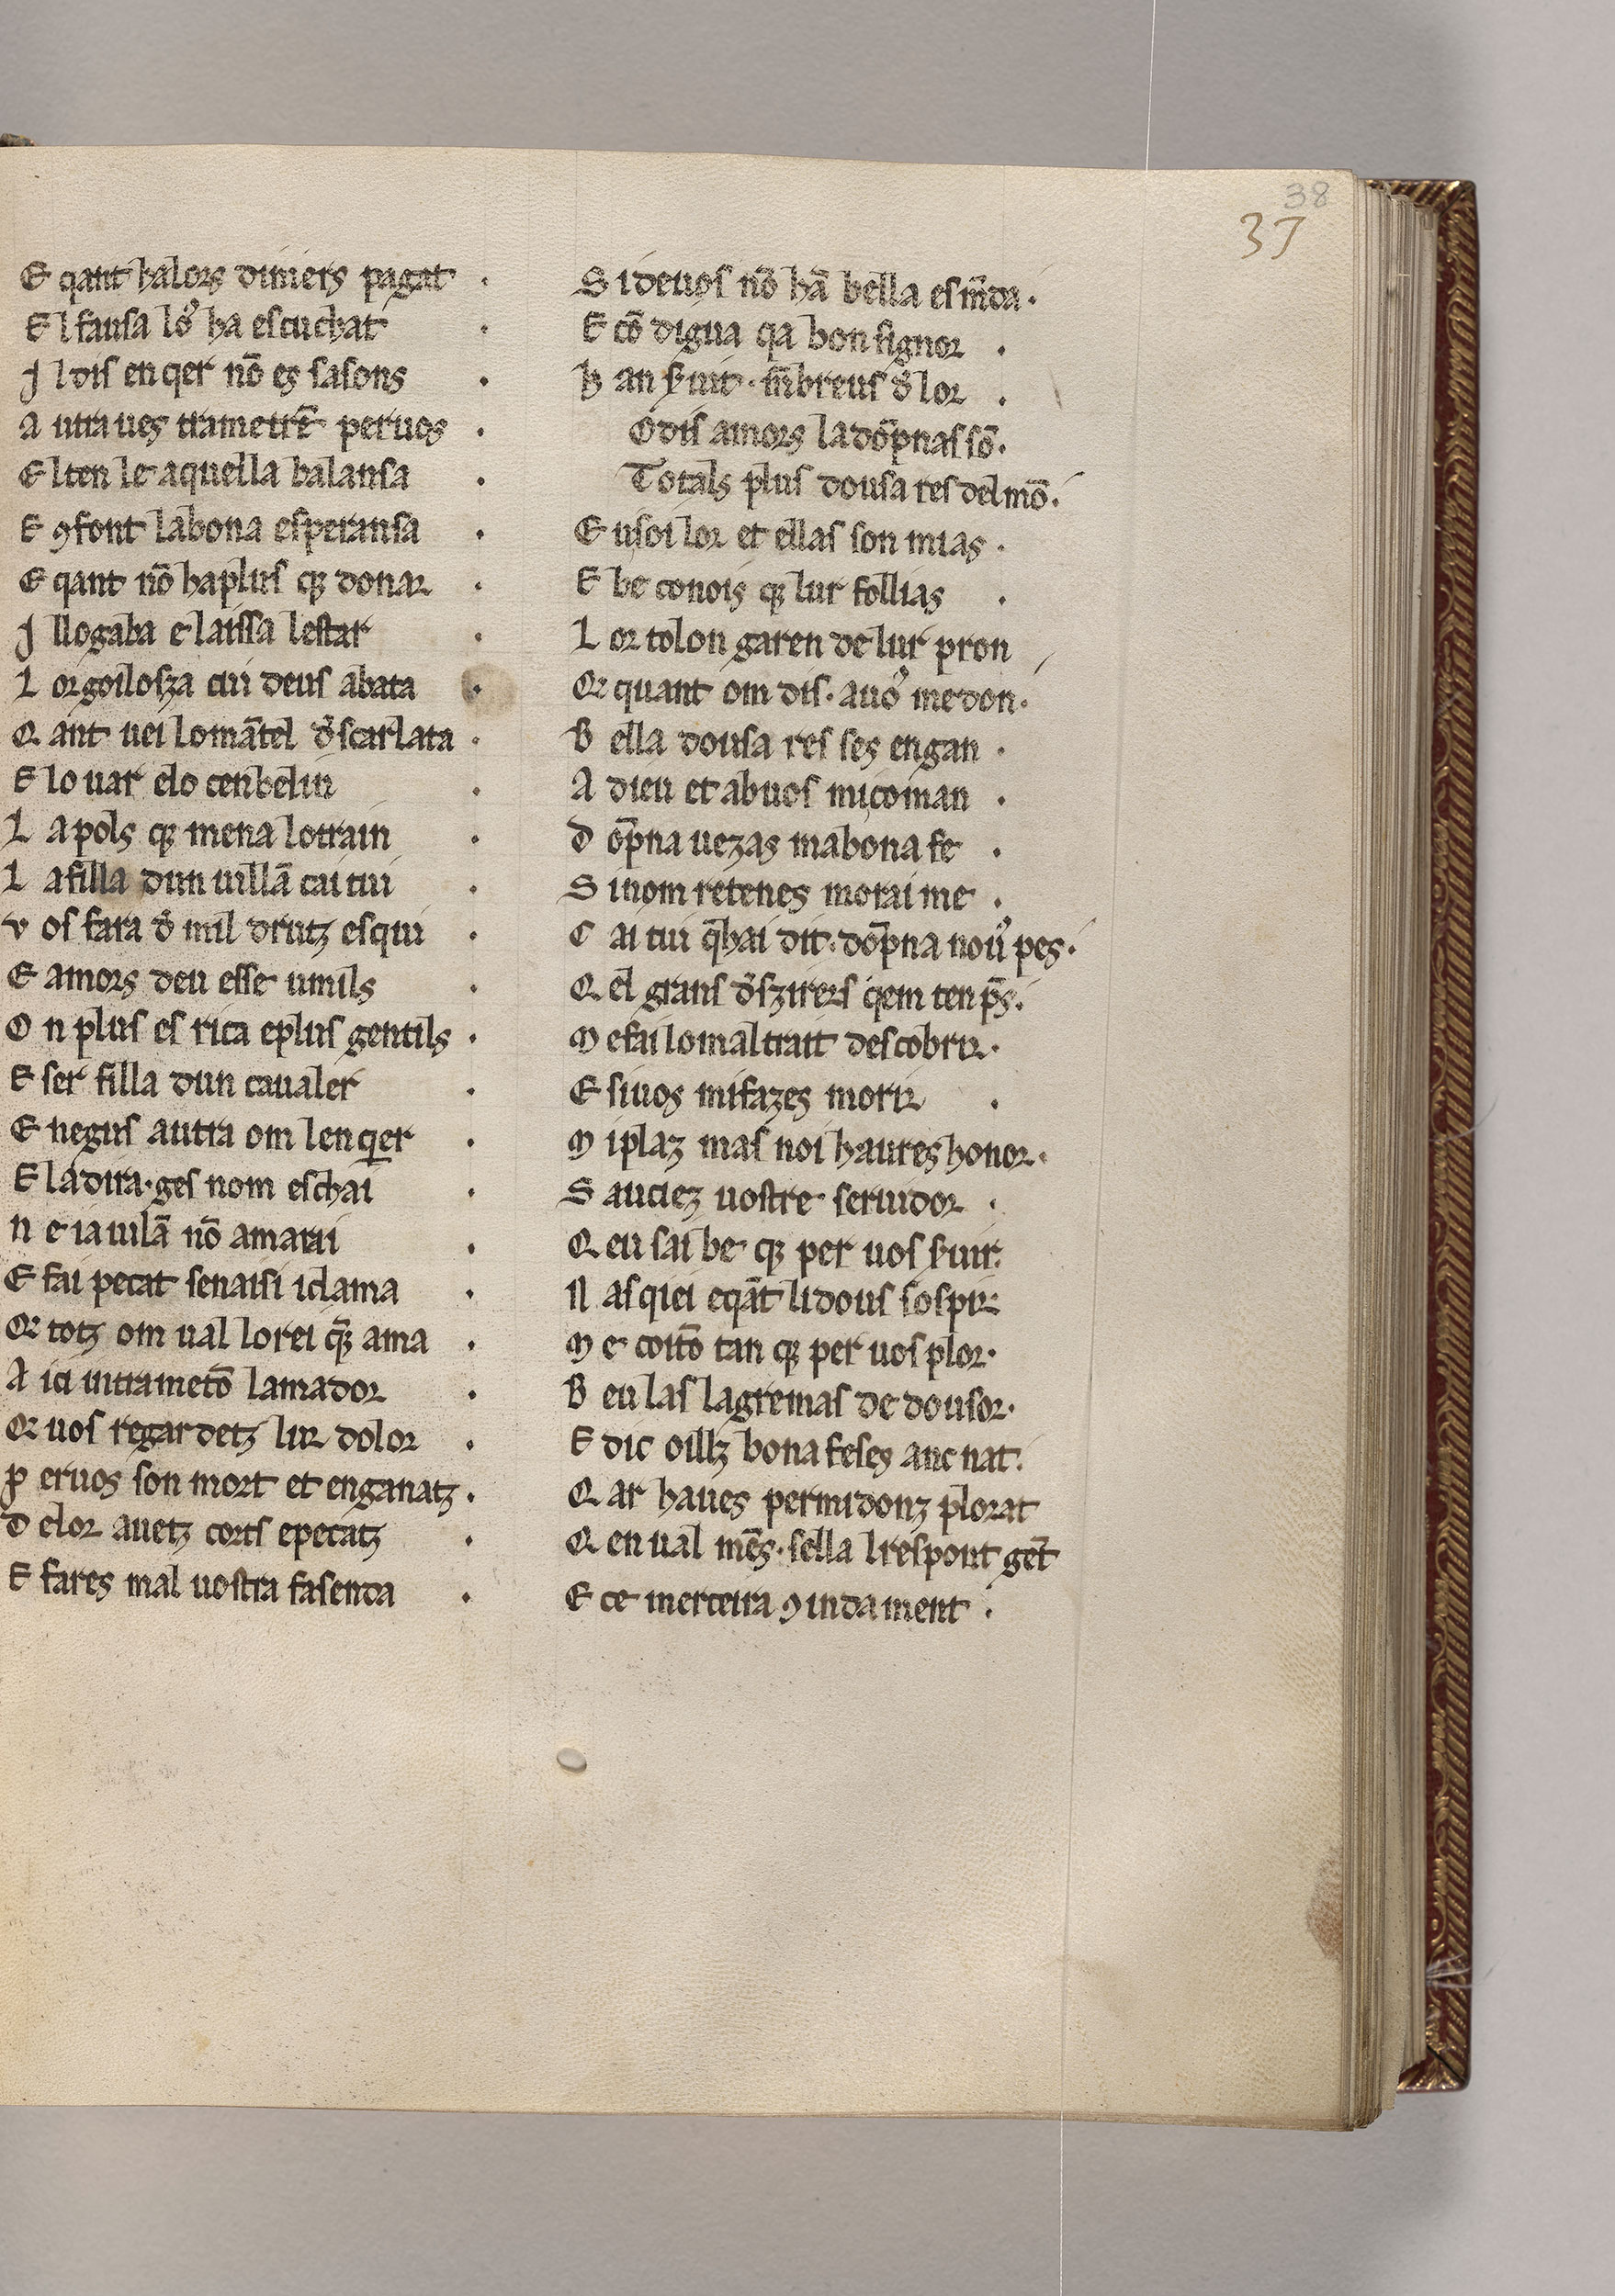 38
37
E qant halors diniers pagat ·
E l fausa lor ha escuchat ·
J l dis en qer nō es sasons ·
A utra ues trametrē per uos ·
E l ten le aquella balansa ·
E ꝯfont la bona esperansa ·
E qant nō ha plus qꝫ donar ·
J llogaba e laissa lestar ·
L orgoilosza cui deus abata ·
Q ant uei lo mātel descarlata ·
E lo uar e lo cenbelin ·
L a pols qꝫ mena lo train ·
L a filla dun uillā cai tiu ·
V os fara de mil drutz esquiu ·
E amors deu esse umils ·
O n plus es rica e plus gentils ·
E ser filla dun caualer ·
E negus autra om len qer ·
E la dira · ges nom eschai ·
N e ia uilā nō amarai ·
E fai pecat senaisi iclama ·
Qr totz om ual lo rei qā ama ·
A ici intrametō lamador ·
Qr uos regardetz lur dolor ·
P er uos son mort et enganatz ·
D elor auetz corts e pecatz ·
E fares mal uostra fasenda ·
S i de uos nō hā bella esmēda ·
E cō digua qa bon signor ·
H an seruit · mēbreus de lor ·
O dis amors la dōpnas sō ·
Totals plus dousa res del mō ·
E u soi lor et ellas son mias ·
E be conois qꝫ lur follias ·
L or tolon garen de lur pron
Qr quant om dis · a uos me don ·
B ella dousa res ses engan ·
A dieu et a buos mi coman ·
D ōpna uezas ma bona fe ·
S i nom retenes morai me ·
C ai tiu qhai dit · dōpna nous pes ·
Q el grans deszirers qem ten pres ·
M e fai lo maltrait descobrir ·
E si uos mi fazes morir ·
M i plaz mas noi haures honor ·
S auciez uostre seruidor ·
Q eu sai be qꝫ per uos seruir ·
N asqiei e qāt li dous sospir
M e coitō tan qꝫ per uos plor ·
B eu las lagremas de dousor ·
E dic oillz bona fe ses anc nat ·
Q ar haues per midonz plorat
Q en ual mēs · sella l respont gēt
E ce merceira ꝯindament ·